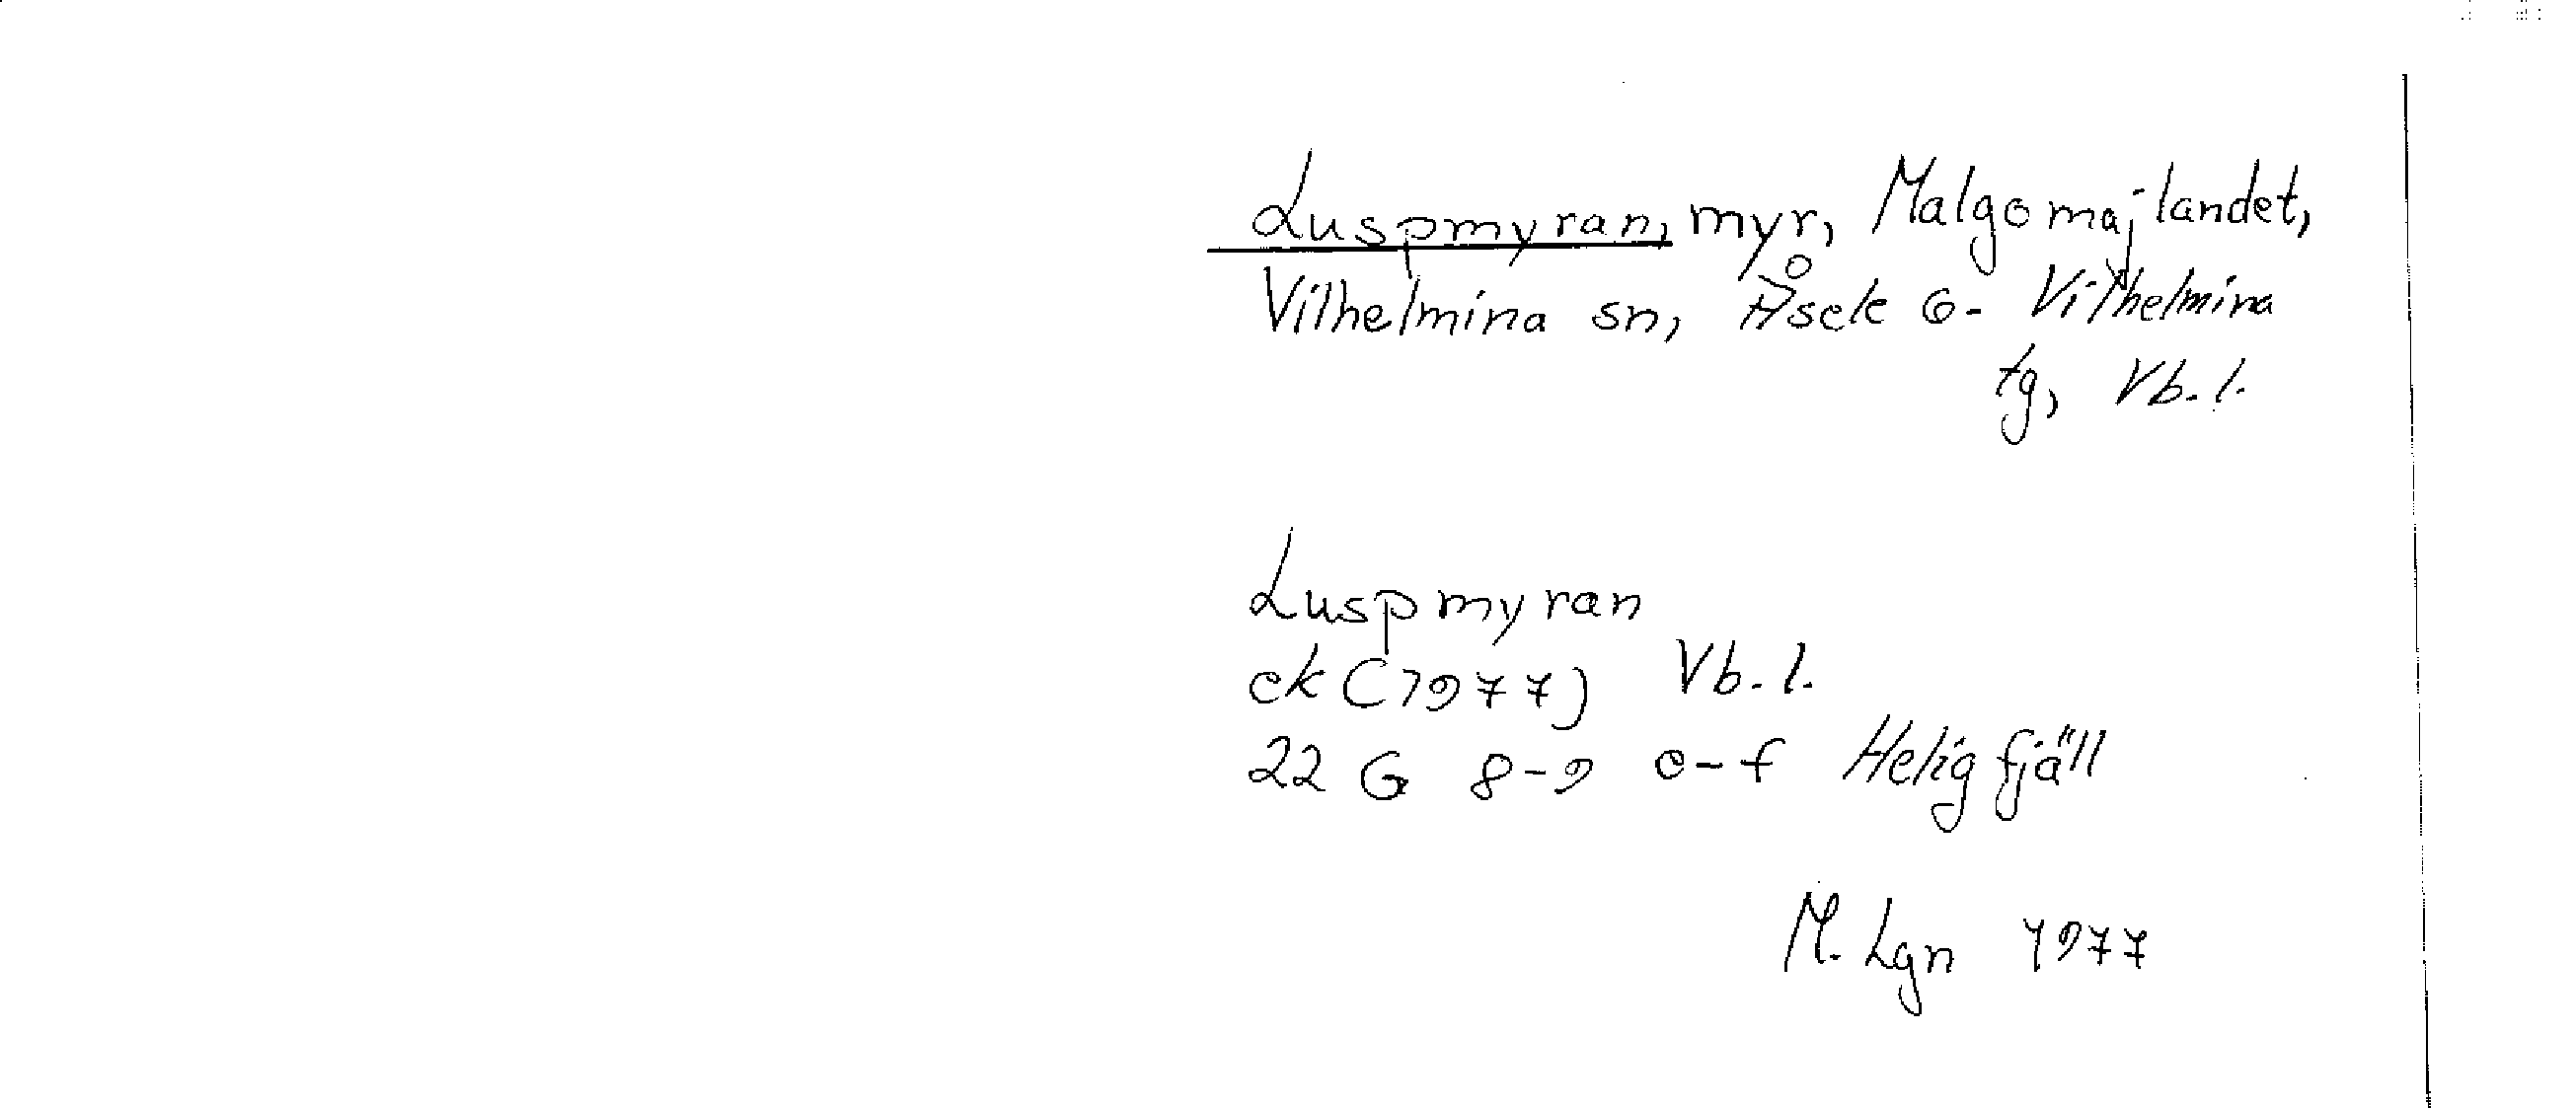 Luspmyran, myr, Malgomajlandet,
Vilhelmina sn, Åsele o. Vilhelmina
tg, Vb. l.
Luspmyran
ek (1977) Vb. l.
22 G 8-9 e-f Heligfjäll
M. Lgn 1977